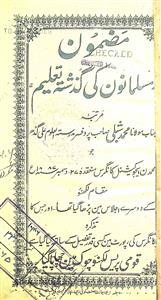 مضمون
CHECKED
مسلمانون کی گذشتہ تعلیم
مرتبہ
جناب مولانا محمد شبلی صاحب پروفیسر مدرسۃ العلوم علی گڑھ
جو
محمڈن ایجوکیشنل کانگرس منعقدہ ۲۷ دسمبر
بمقام لکھنؤ
کے دوسرے اجلاس مین پڑھا گیا تھا۔ اور جس کا
تذکرہ
کانگرس کی رپورٹ مین کسی قدر تفصیل کے ساتھ کیا گیا ہے
قومی پریس لکھنؤ مین چھاپا گیا